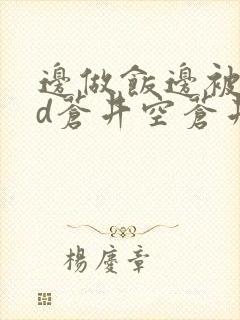 邊做飯邊被
d蒼井空蒼井
楊慶章